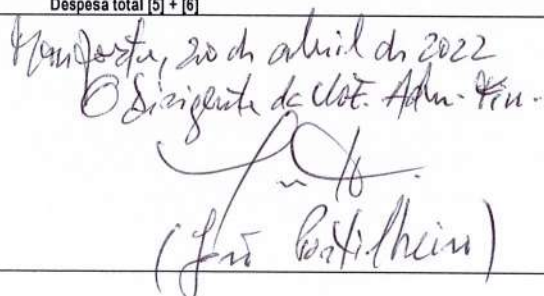 Despesa total [5] + [6]
Monforte, 20 de abril de 2022
O Dirigente da Uni. Adm. Fin.
(João Portilheiro)